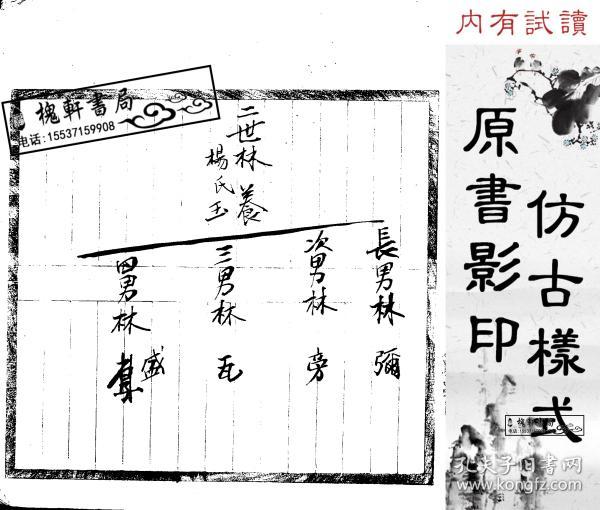 內有試讀
仿古樣式
原書影印
槐軒書局
电话:15537159908
二世林養
楊氏玉
長男林彌
次男林旁
三男林瓦
四男林
盛
槐軒書局
电话:15537159908
孔夫子旧书网
www.kongfz.com